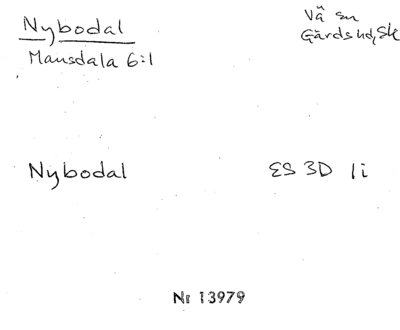 Nybodal
Mansdala 6:1
Vä sn
Gärds hd, Sk
Nybodal
ES 3D 1i
Nr 13979